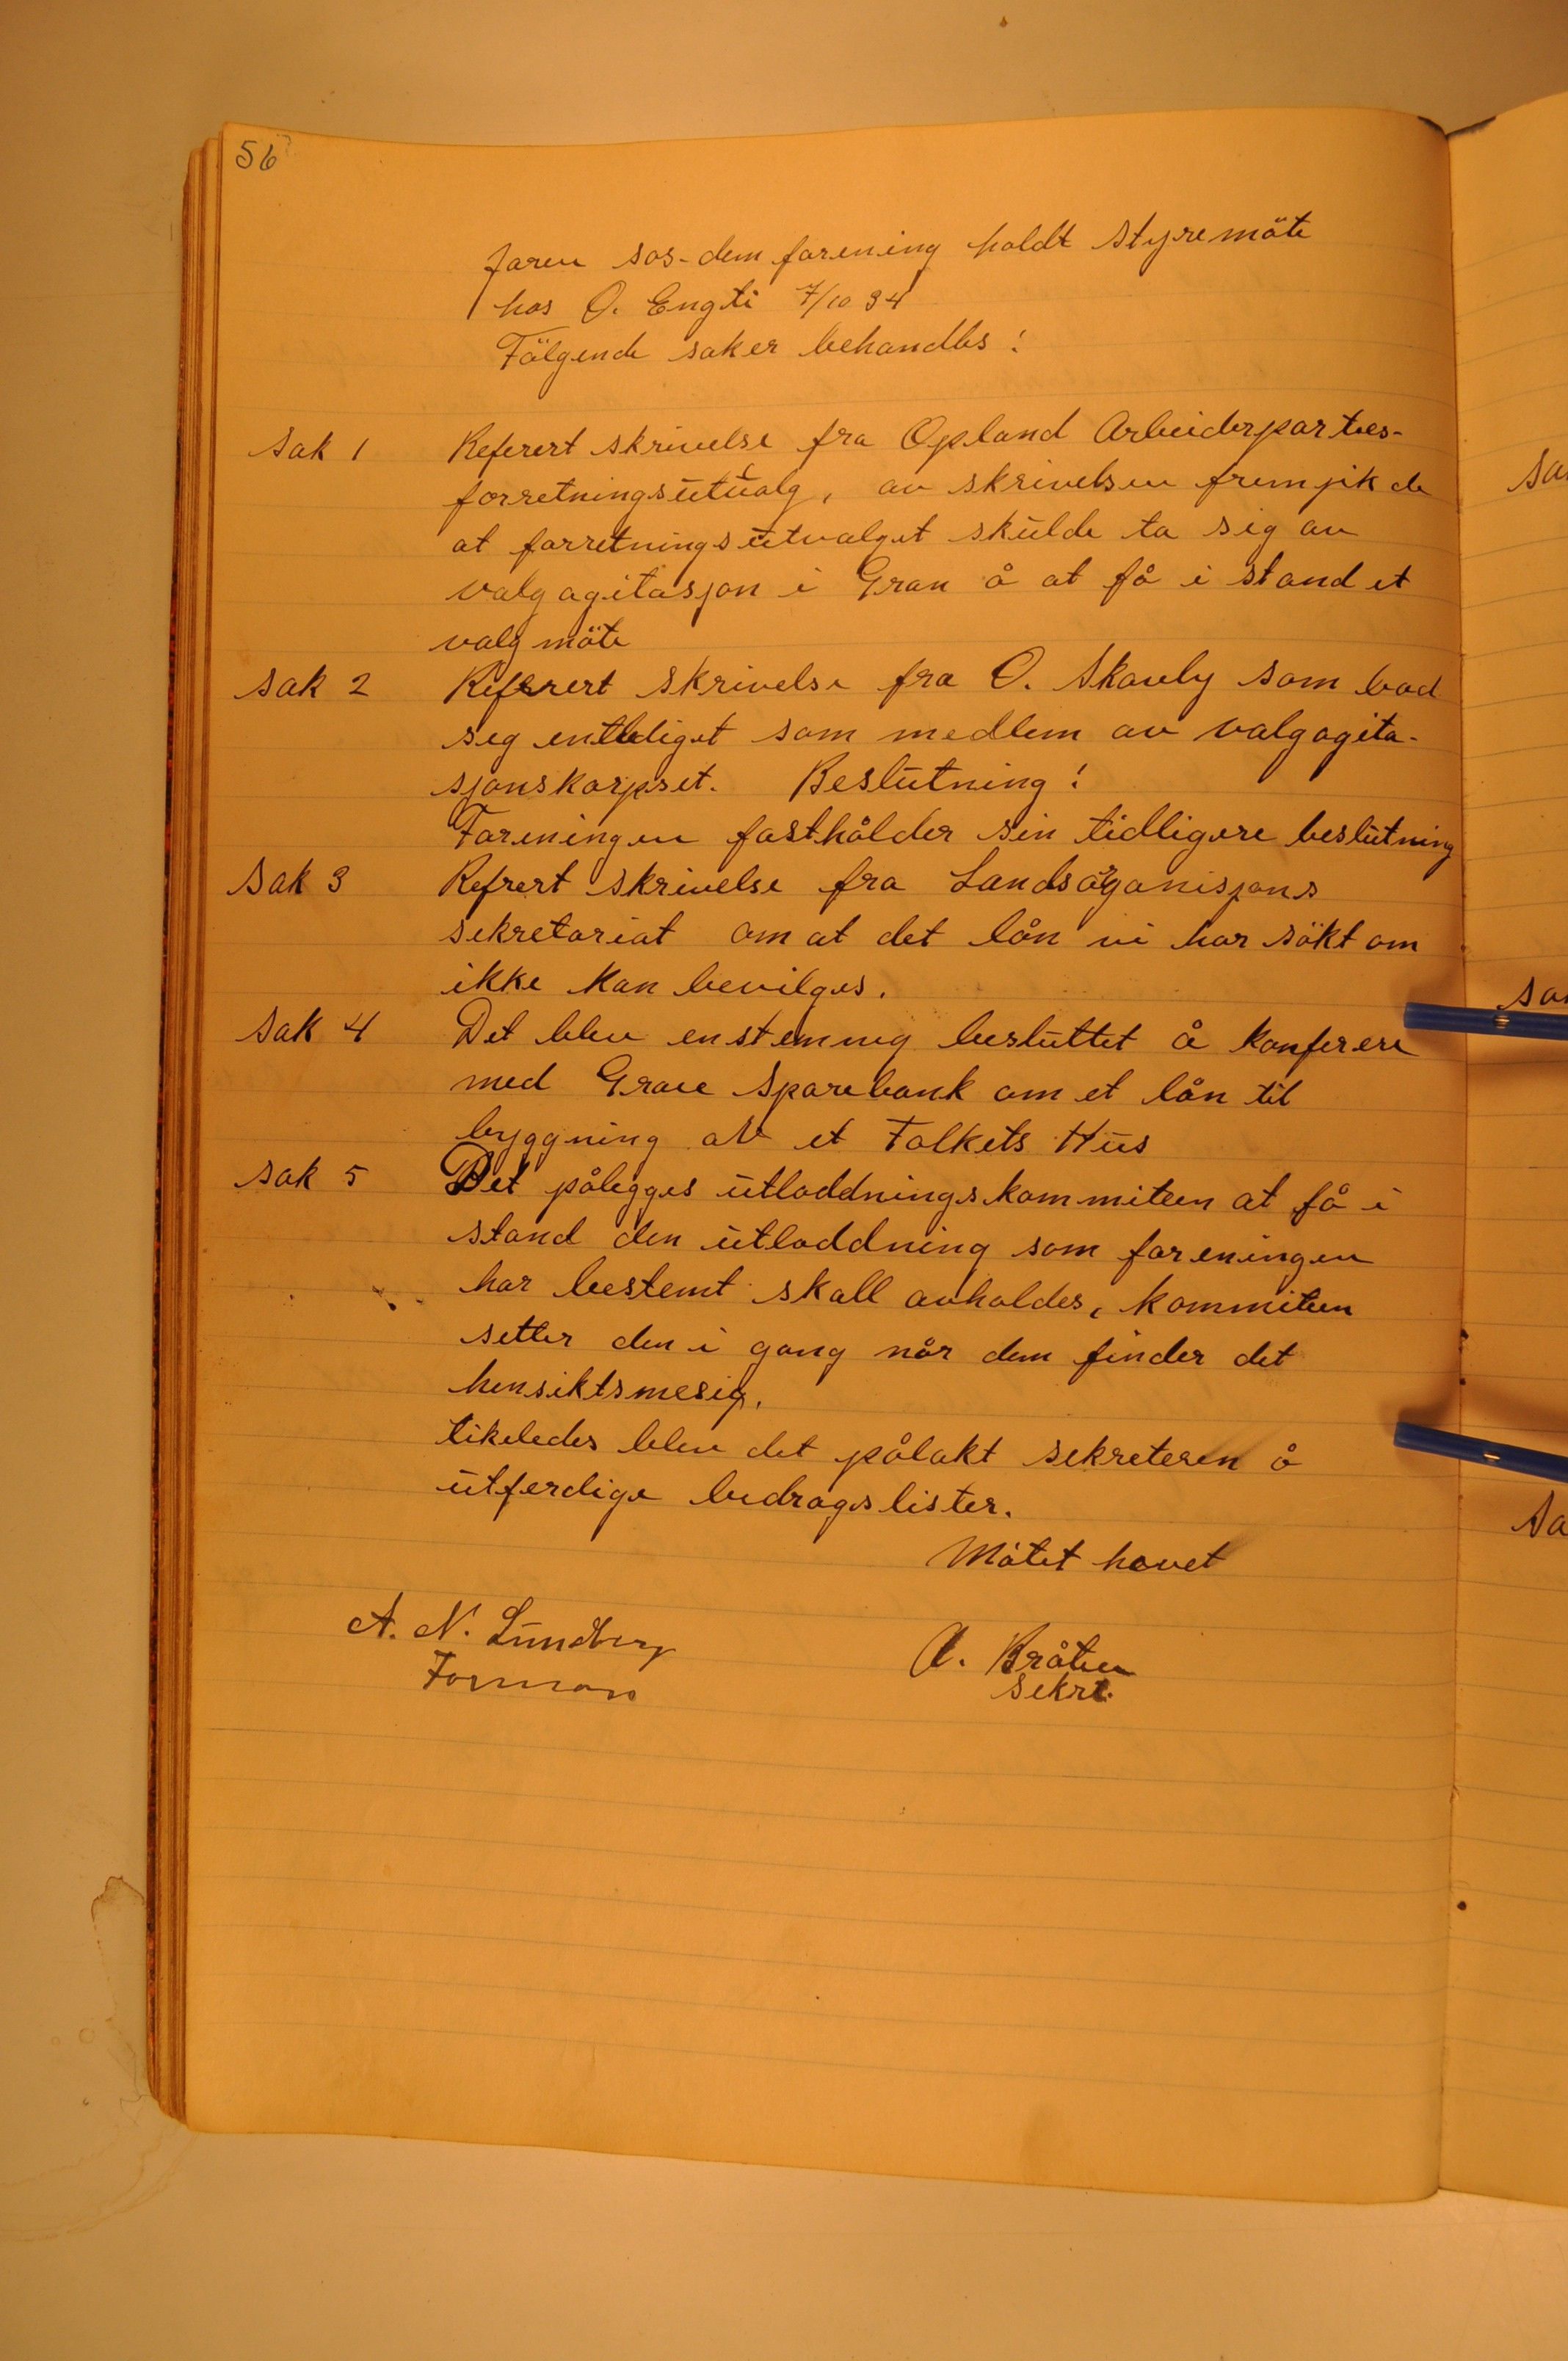 56
Jaren sos-dem forening holdt styremöte
hos O. Engli 7/10 34
Fölgende saker behandles:
Sak 1 Referert skrivelse fra Opland Arbeiderparties-
forretningsutvalg, av skrivelsen fremgik de
at forretningsutvalget skulde ta sig av
valgagitasjon i Gran å at få i stand et
valgmöte
Sak 2 Referert skrivelse fra O. Skavly som bad
seg entlediget som medlem av valgagita-
sjonskorpset. Beslutning:
Foreningen fastholder sin tidligere beslutning
Sak 3 Refrert skrivelse fra Landsorganisjons
sekretariat om at det lån vi har sökt om
ikke kan bevilges.
Sak 4 Det blev enstemmig besluttet å konferere
med Grane Sparebank om et lån til
byggning av et Folkets Hus
Sak 5 Det pålegges utloddningskommiteen at få i
stand den utloddning som foreningen
har bestemt skall avholdes, kommiteen
setter den i gang når dem finder det
hensiktsmesig.
likeledes blev det pålakt sekreteren å
utferdige bidragslister.
Mötet hevet
A. N. Lundberg
Formann
A. Bråten
Sekre.
Sa
Sa
Sa